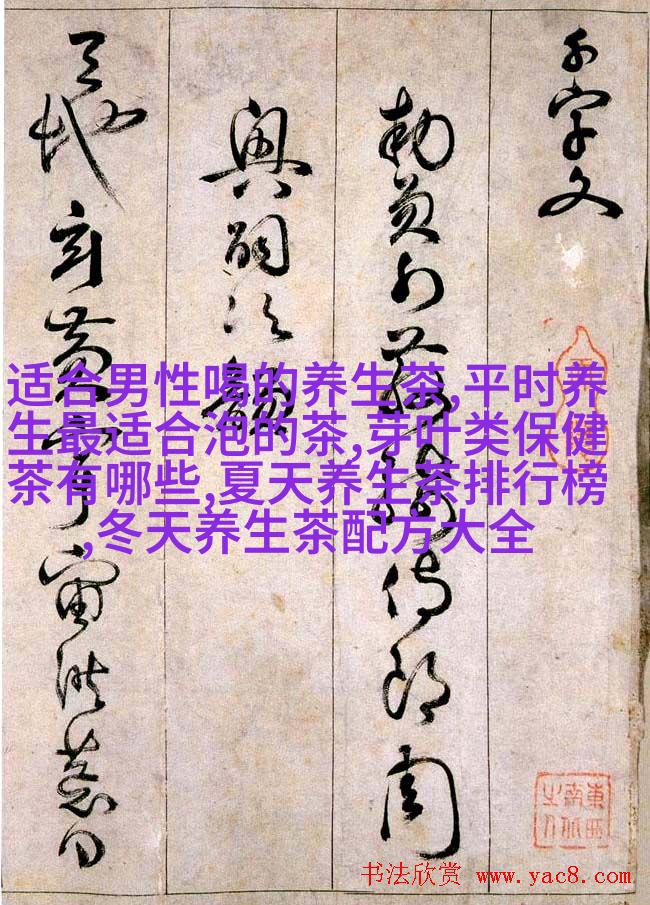 千字文
勅員外散騎侍郎周
興嗣次韻
天地玄黃宇宙洪荒日
适合男性喝的养生茶,平时养
生最适合泡的茶,芽叶类保健
茶有哪些,夏天养生茶排行榜
,冬天养生茶配方大全
東西
南北
之人
书法欣赏 www.yac8.com